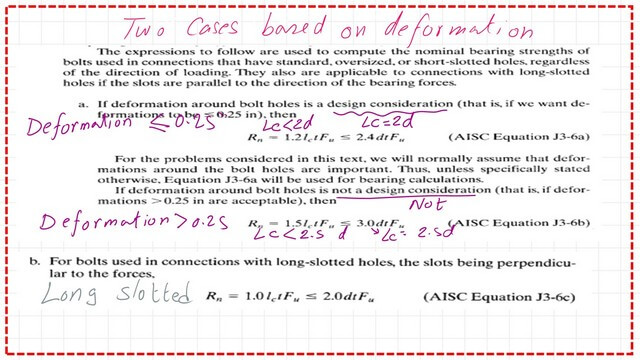 Two Cases based on deformation
The expressions to follow are used to compute the nominal bearing strengths of
bolts used in connections that have standard, oversized, or short-slotted holes, regardless
of the direction of loading. They also are applicable to connections with long-slotted
holes if the slots are parallel to the direction of the bearing forces.
a. If deformation around bolt holes is a design consideration (that is, if we want de-
formations to be ≤ 0.25 in), then
Deformation ≤ 0.25 Lc<2d Lc=2d
Rn = 1.2lctFu ≤ 2.4dtFu (AISC Equation J3-6a)
For the problems considered in this text, we will normally assume that defor-
mations around the bolt holes are important. Thus, unless specifically stated
otherwise, Equation J3-6a will be used for bearing calculations.
If deformation around bolt holes is not a design consideration (that is, if defor-
mations >0.25 in are acceptable), then Not
Deformation >0.25 Rn = 1.5lctFu ≤ 3.0dtFu (AISC Equation J3-6b)
Lc < 2.5 d Lc= 2.5d
b. For bolts used in connections with long-slotted holes, the slots being perpendicu-
lar to the forces,
Long slotted Rn = 1.0lctFu ≤ 2.0dtFu (AISC Equation J3-6c)